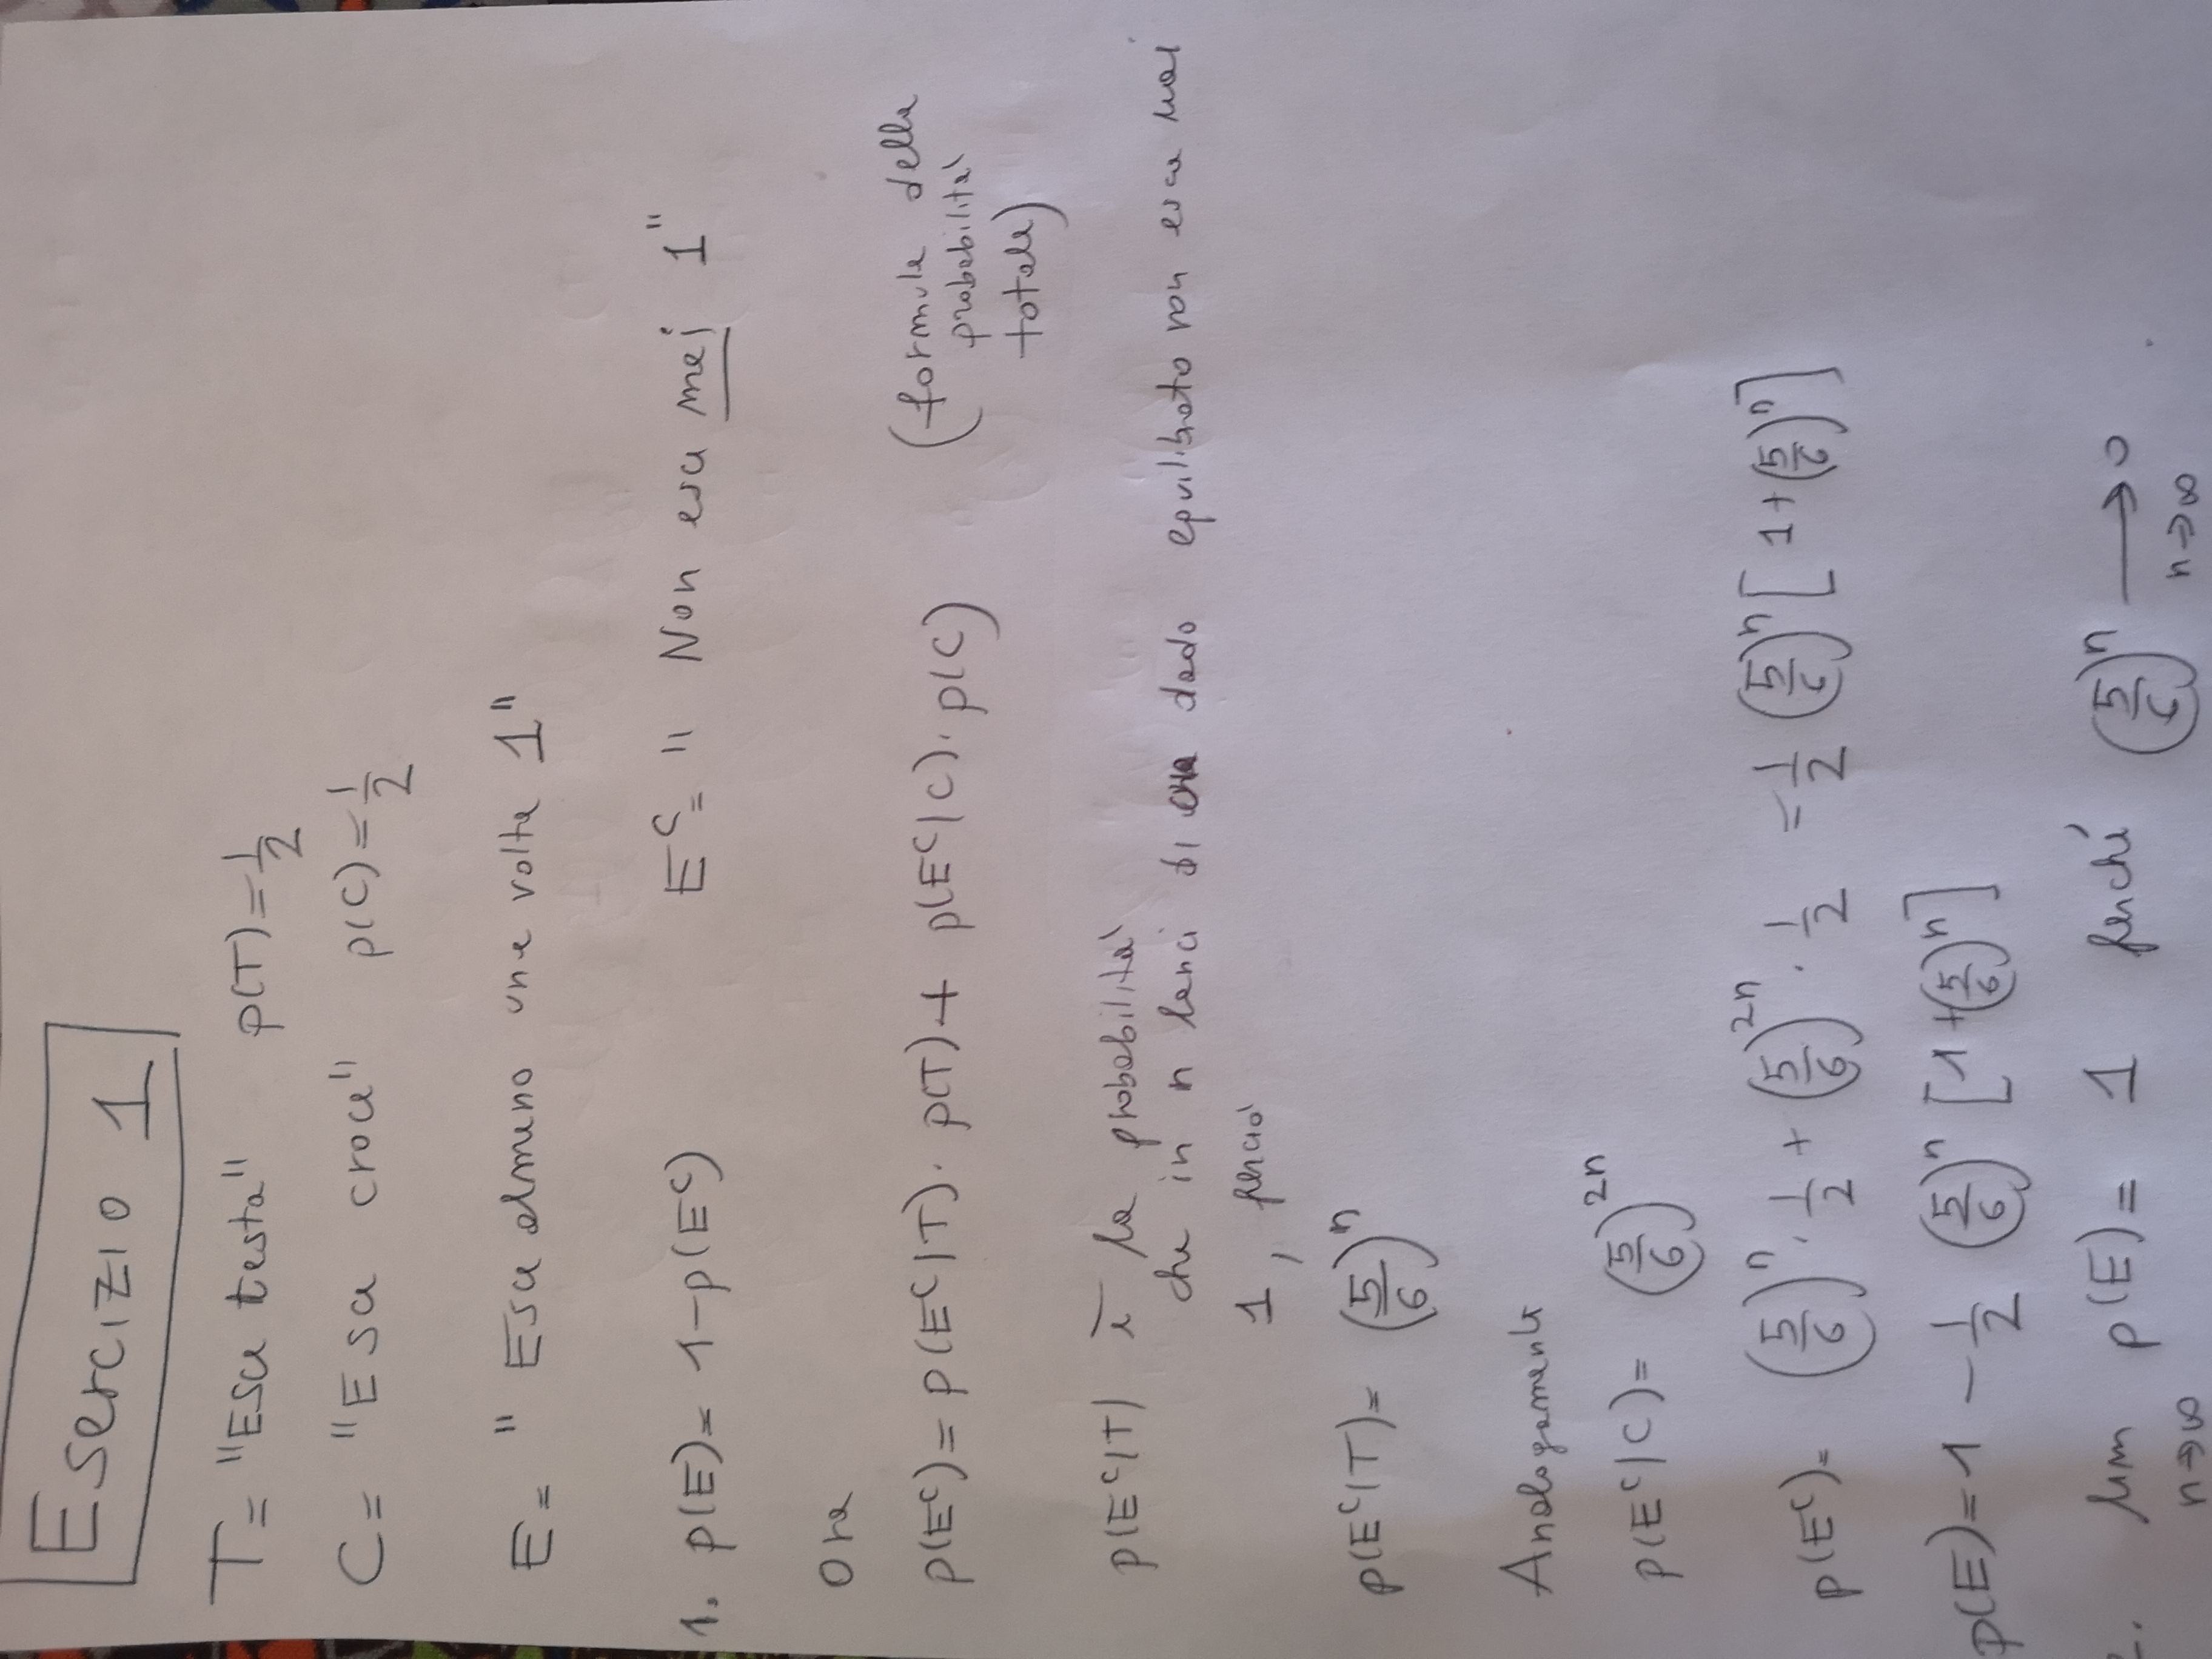 Esercizio 1
T= "Esce testa" p(T)=1/2
C= "Esce croce" p(C)=1/2
E= "Esce almeno una volta 1"
1. p(E)= 1-p(E^C) E^C= "Non esce mai 1"
Ora
p(E^C)= p(E^C|T)· p(T)+ p(E^C|C)· p(C) (formula della
probabilità
totale)
p(E^C|T) è la probabilità
che in n lanci di un dado equilibrato non esca mai
1, perciò
p(E^C|T)= (5/6)^n
Analogamente
p(E^C|C)= (5/6)^2n
p(E^C)= (5/6)^n · 1/2 + (5/6)^2n · 1/2 = 1/2 (5/6)^n [1+(5/6)^n]
p(E)= 1 - 1/2 (5/6)^n [1+(5/6)^n]
2. lim n→∞ p(E)= 1 perché (5/6)^n → 0 n→∞ .